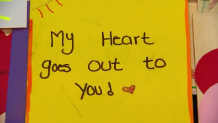 My Heart
goes out to
you!